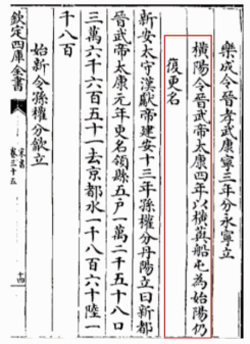 樂成令晉孝武康寧三年分永寧立
橫陽令晉武帝太康四年以橫藇船屯為始陽仍
復更名
新安太守漢獻帝建安十三年孫權分丹陽立曰新都
晉武帝太康元年更名領縣五戶一萬二千五十八口
三萬六千六百五十一去京都水一千八百六十陸一
千八百
始新令孫權分歙立
欽定四庫全書
宋書
卷三十五
十四